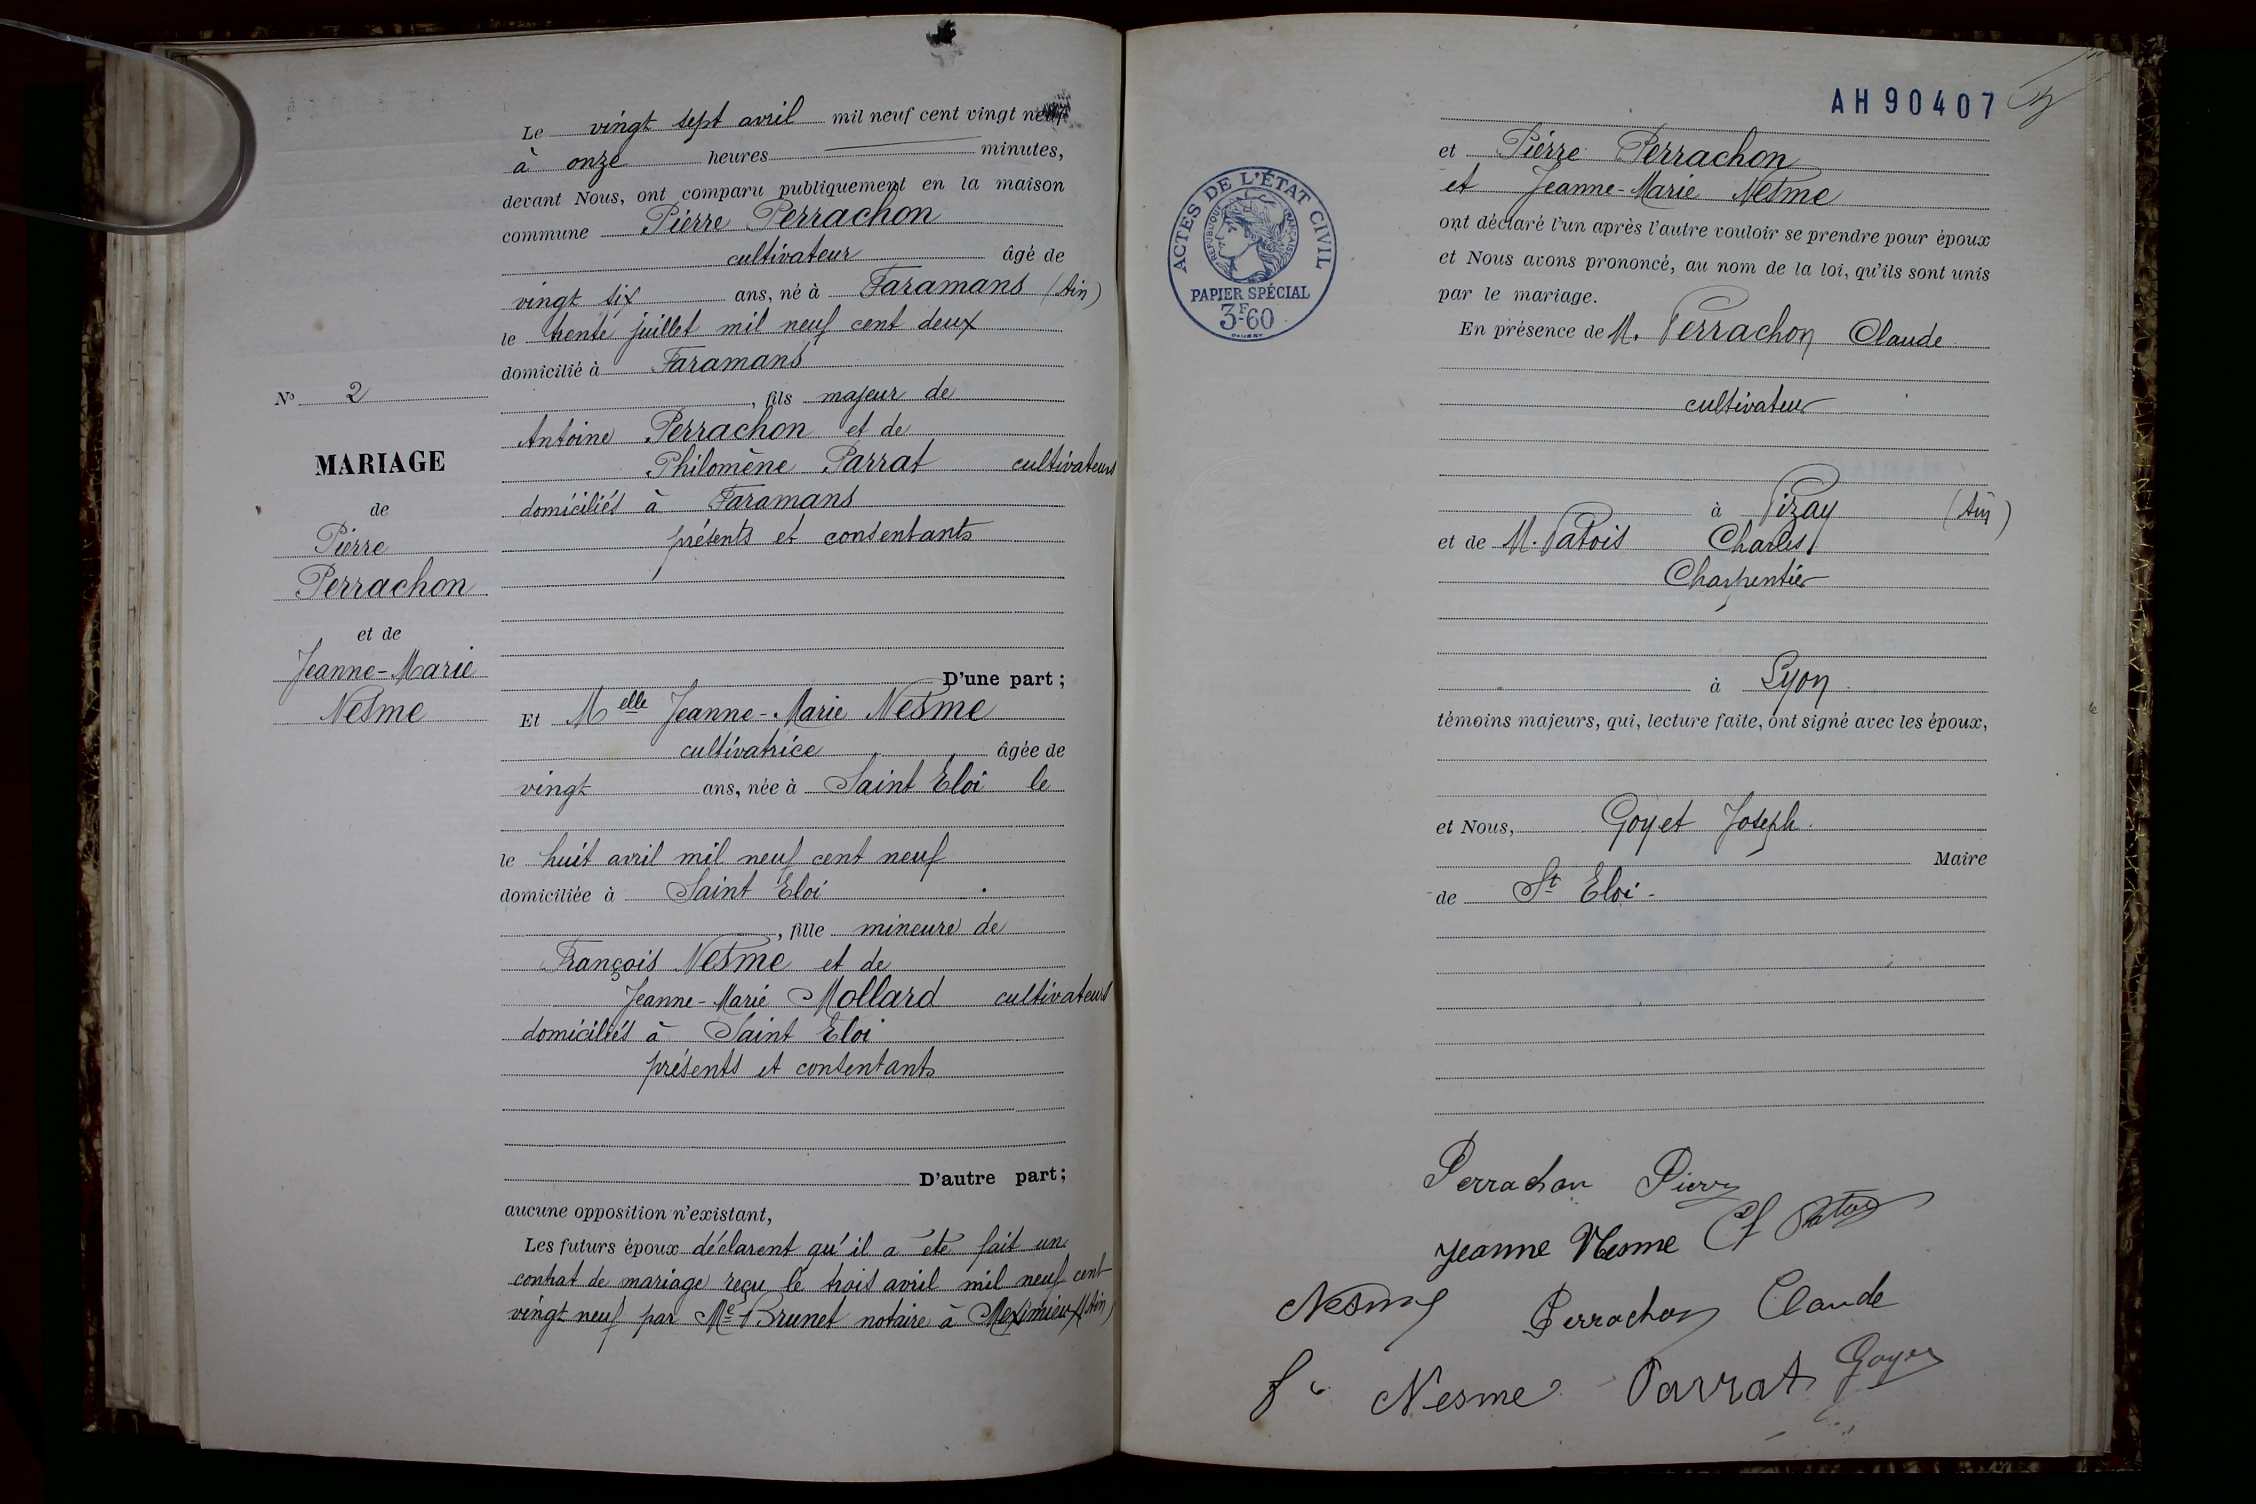 Le vingt sept avril mil neuf cent vingt neuf
à onze heures minutes,
devant Nous, ont comparu publiquement en la maison
commune Pierre Perrachon
cultivateur âgé de
vingt six ans, né à Faramans (Ain)
le trente juillet mil neuf cent deux
domicilié à Faramans
, fils majeur de
Antoine Perrachon et de
Philomène Parrat cultivateurs
domiciliés à Faramans
présents et consentants
D'une part ;
Et Melle Jeanne-Marie Nesme
cultivatrice âgée de
vingt ans, née à Saint Eloi le
le huit avril mil neuf cent neuf
domiciliée à Saint Eloi
, fille mineure de
François Nesme et de
Jeanne-Marie Mollard cultivateurs
domiciliés à Saint Eloi
présents et consentants
D'autre part ;
aucune opposition n'existant,
Les futurs époux déclarent qu'il a été fait un
contrat de mariage reçu le trois avril mil neuf cent
vingt neuf par Me Brunet notaire à Meximieux (Ain)
No 2
MARIAGE
de
Pierre
Perrachon
et de
Jeanne-Marie
Nesme
AH 90407
ACTES DE L'ÉTAT CIVIL
RÉPUBLIQUE FRANÇAISE
PAPIER SPÉCIAL
3F60
et Pierre Perrachon
et Jeanne-Marie Nesme
ont déclaré l'un après l'autre vouloir se prendre pour époux
et Nous avons prononcé, au nom de la loi, qu'ils sont unis
par le mariage.
En présence de M. Perrachon Claude
cultivateur
à Pizay (Ain)
et de M. Patois Charles
Charpentier
à Lyon
témoins majeurs, qui, lecture faite, ont signé avec les époux,
et Nous, Goyet Joseph
Maire
de St Eloi
Perrachon Pierre
Jeanne Nesme Ch Patois
Nesme Perrachon Claude
Nesme Parrat Goyet